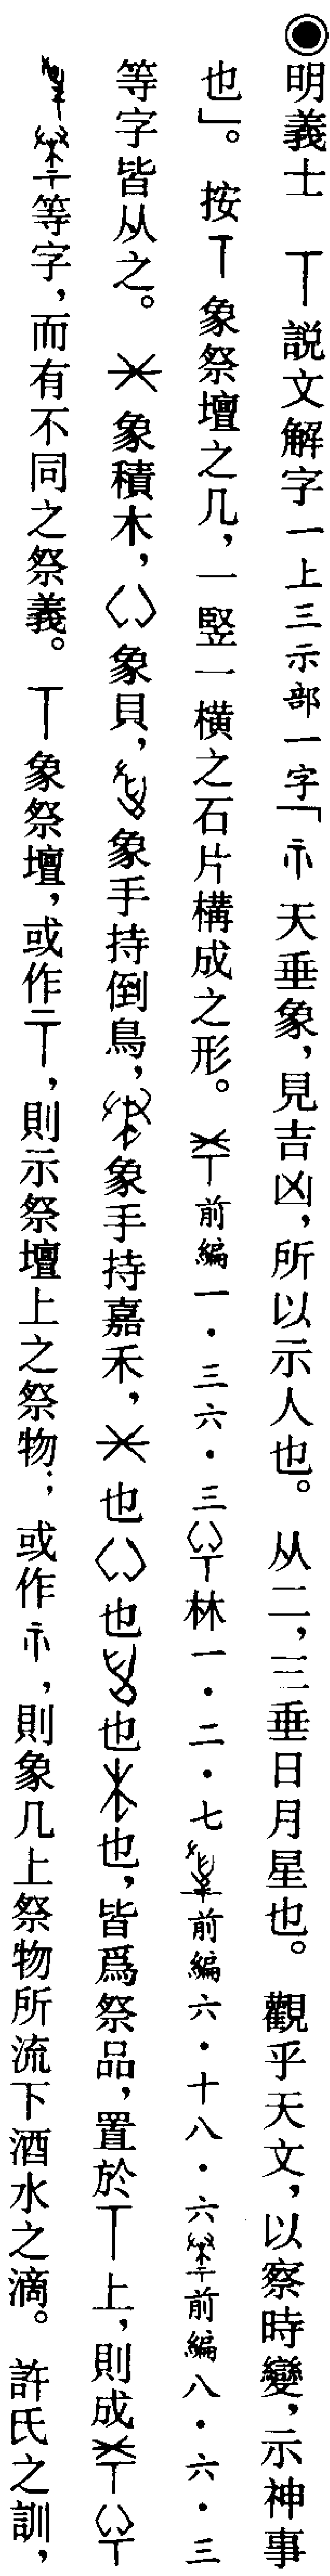 ◉明義士　丅説文解字一上三示部一字「示天垂象，見吉凶，所以示人也。从二，三垂日月星也。觀乎天文，以察時變，示神事
也」。按丅象祭壇之几，一竪一橫之石片構成之形。前編一·三六·三林一·二·七前編六·十八·六前編八·六·三
等字皆从之。象積木，象貝，象手持倒鳥，象手持嘉禾，也也也也，皆爲祭品，置於丅上，則成
等字，而有不同之祭義。丅象祭壇，或作，則示祭壇上之祭物；或作示，則象几上祭物所流下酒水之滴。許氏之訓，